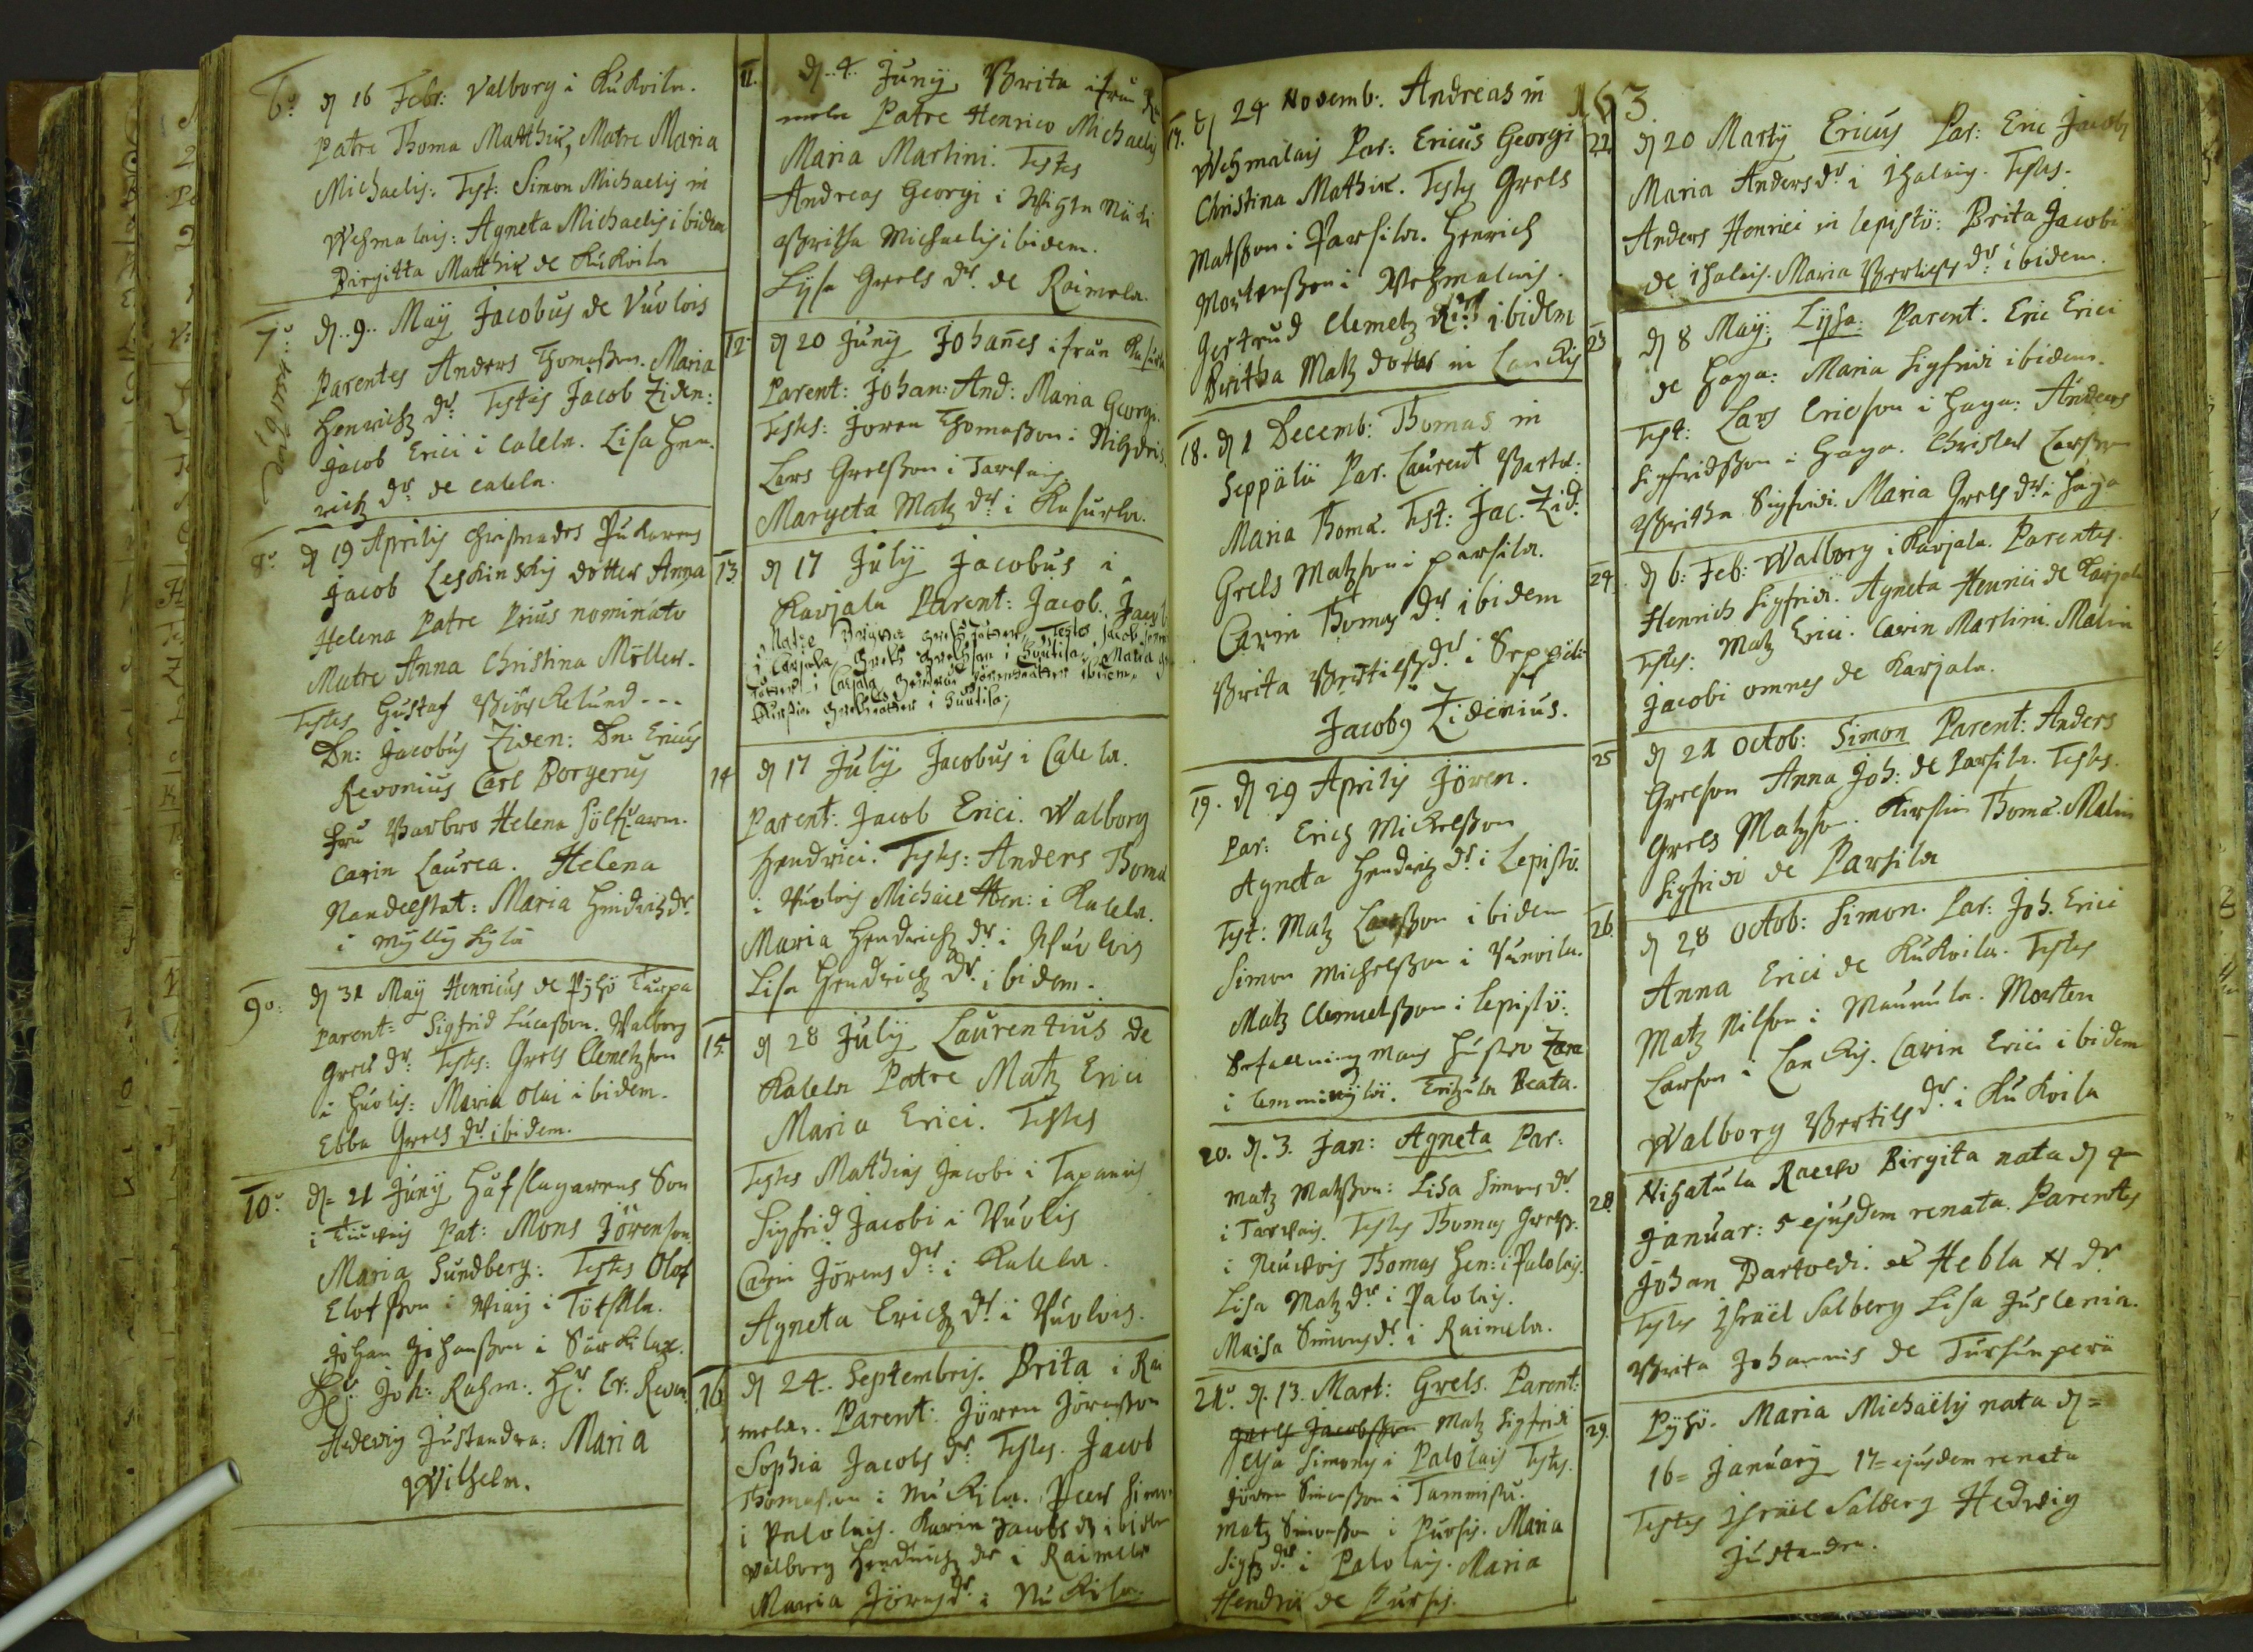 6:o d 16 Febr: Valborg i Kukoila.
Patre Thoma Matthiæ, Matre Maria
Michaelis: Test: Simon Michaelis in
Wehmalais: Agneta Michaelis ibidem
Birgitta Matthiæ de Kukoila
7:o d. 9. Maij Jacobus de Vuolois
Parentes Anders Thomasson. Maria
Henrichz dr: Testes Jacob Ziden:
Jacob Erici i Calela. Lisa Hen-
richz dr de Calela.
8:o d 19 Aprilis
Jacob Leskinskij dotter Anna
Helena Patre Prius nominato
Matre Anna Christina Möller.
Testes Gustaf Biörkelund - - -
Dn: Jacobus Ziden: Dn: Ericus
Revonius Carl Borgerus
fru Barbro Helena
Carin Laurea. Helena
Maria Hendrichz dr
i Mylly Kylä
9:o d 31 Maij Henricus de Pyhö
Parent: Sigfrid Lucasson. Walborg
Grels dr: Testes: Grels Clemetzson
i Huolis: Maria Olai ibidem.
Ebba Grels dr ibidem.
10:o d= 21 Junij Hofslagarens Son
i Pat: Mons Jörenson
Maria Sundberg: Testes Olof
Elofsson i
Johan Johansson i Särkilax.
Joh: Rahm: Er: Revon:
Hedevig Justandra: Maria
Wilhelm.
11. d. 4. Junij Brita ifrån Rai
mela Patre Henrico Michaelis
Maria Martini. Testes
Andreas Georgi i
Britha Michaelis ibidem.
Lysa Grels dr. de Raimela.
12. d 20 Junij Johañes ifrån Kasurla
Parent: Johan: And: Maria Georgi.
Testes: Joren Thomasson i
Lars Grelsson i Tarvais
Margeta Matz dr i Kasurla.
13. d 17 Julij Jacobus i
Karjala Parent: Jacob. Jacob
Matre Brigita Testes Jacob
i Carjala, Grels Grelsson i Huutila, Maria
i Carjala ibidem,
i Huutila,
14 d 17 Julij Jacobus i Calela.
Parent: Jacob Erici. Walborg
Hendrici. Testes: Anders Thoma
i Vuolois Michael Hen: i Kalela.
Maria Hendrichz dr i Vuolois
Lisa Hendrichz dr. ibidem.
15. d 28 Julij Laurentius de
Kalela Patre Matz Erici
Maria Erici. Testes
Testes Mathias Jacobi i Tapanis
Sigfrid Jacobi i Vuolis
Carin Jörens dr: i Kalela.
Agneta Erichz dr i Vuolois.
16 d 24. Septembris. Brita i Rai
mela. Parent: Jören Jörensson
Sophia Jacobs dr. Testes. Jacob
Thomasson i Nukila. Peer Simon
i Palolais. Karin Jacobs dr ibidem
Walborg Hendrichz dr i Raimela
Maria Jörens dr i Nukila.
163.
17. d 24 Novemb: Andreas in
Wehmalais Par: Ericus Georgi
Christina Mathiæ. Testes Grels
Matsson i Parsila. Henrich
Mortensson i Wehmalais.
Gertrud Clemetz ibidem
Britha Matz dotter in Lankis
18. d 1 Decemb: Thomas in
Seppälä Par. Laurent Barthol:
Maria Thomæ. Test: Jac. Zid:
Grels Matzson i parsila.
Carin Thomas dr ibidem
Brita Bertils dr i Seppäl:
Jacobg Zidenius.
19. d 29 Aprilis Jören.
Par: Erich Mickelsson
Agneta Hendrichz dr i Lepistö.
Test: Matz Larsson ibidem
Simon Michelsson i Vuorila.
Matz Clemetsson i Lepistö:
Befallningmans hustro Zara
i Beata.
20. d. 3. Jan: Agneta Par:
Matz Matsson: Lisa Simons dr.
i Tarvais. Testes Thomas Grelss:
i Thomas Hen: i Palolais.
Lisa Matz dr i Palolais.
Maisa Simons dr i Raimela.
21:o d. 13. Mart: Grels. Parent:
Grels Jacobsson Matz Sigfridi
Elsa Simonis i Palolais Testes.
Jören Simonsson i Tammistu.
Matz Simonsson i Pursis. Maria
Sigfr dr i Palolais. Maria
Hendrici de Pursis.
22. d 20 Martij Ericus Par: Eric Jacobi
Maria Anders dr i Ihalais. Testes.
Anders Henrici in Lepistö: Brita Jacobi
de Ihalais. Maria Bertils dr: ibidem.
23 d 8 Maij: Lysa: Parent. Eric Erici
de Haga: Maria Sigfridi ibidem.
Test: Lars Ericson i Haga: Anders
Sigfridsson i Haga. Christer Larsson
Britha Sigfridi. Maria Grels dr: i Haga
24. d 6: Feb: Walborg i Karjala. Parentes.
Henrich Sigfridi. Agneta Henrici de Karjala
Testes: Matz Erici. Carin Martini. Malin
Jacobi omnes de Karjala.
25 d 21 Octob: Simon Parent: Anders
Grelson Anna Joh: de Parsila. Testes.
Grels Matzson. Kirstin Thomæ. Malin
Sigfridi de Parsila
26. d 28 Octob: Simon. Par: Joh. Erici
Anna Erici de Kukoila. Testes
Matz Nilson i Maunula. Morten
Larson i Lankis. Carin Erici ibidem
Walborg Bertils dr i Kukoila
28. Nihatula Birgita nata d 4
Januar: 5 ejusdem renata. Parentes
Johan Bartoldi. Hebla N dr
Testes Israël Salberg Lisa Juslenia.
Brita Johannis de Tursunperä
29. Pyhö. Maria Michaëlis nata d=
16= Januarij 17= ejusdem renata
Testes Israël Salberg Hedwig
Justandra.